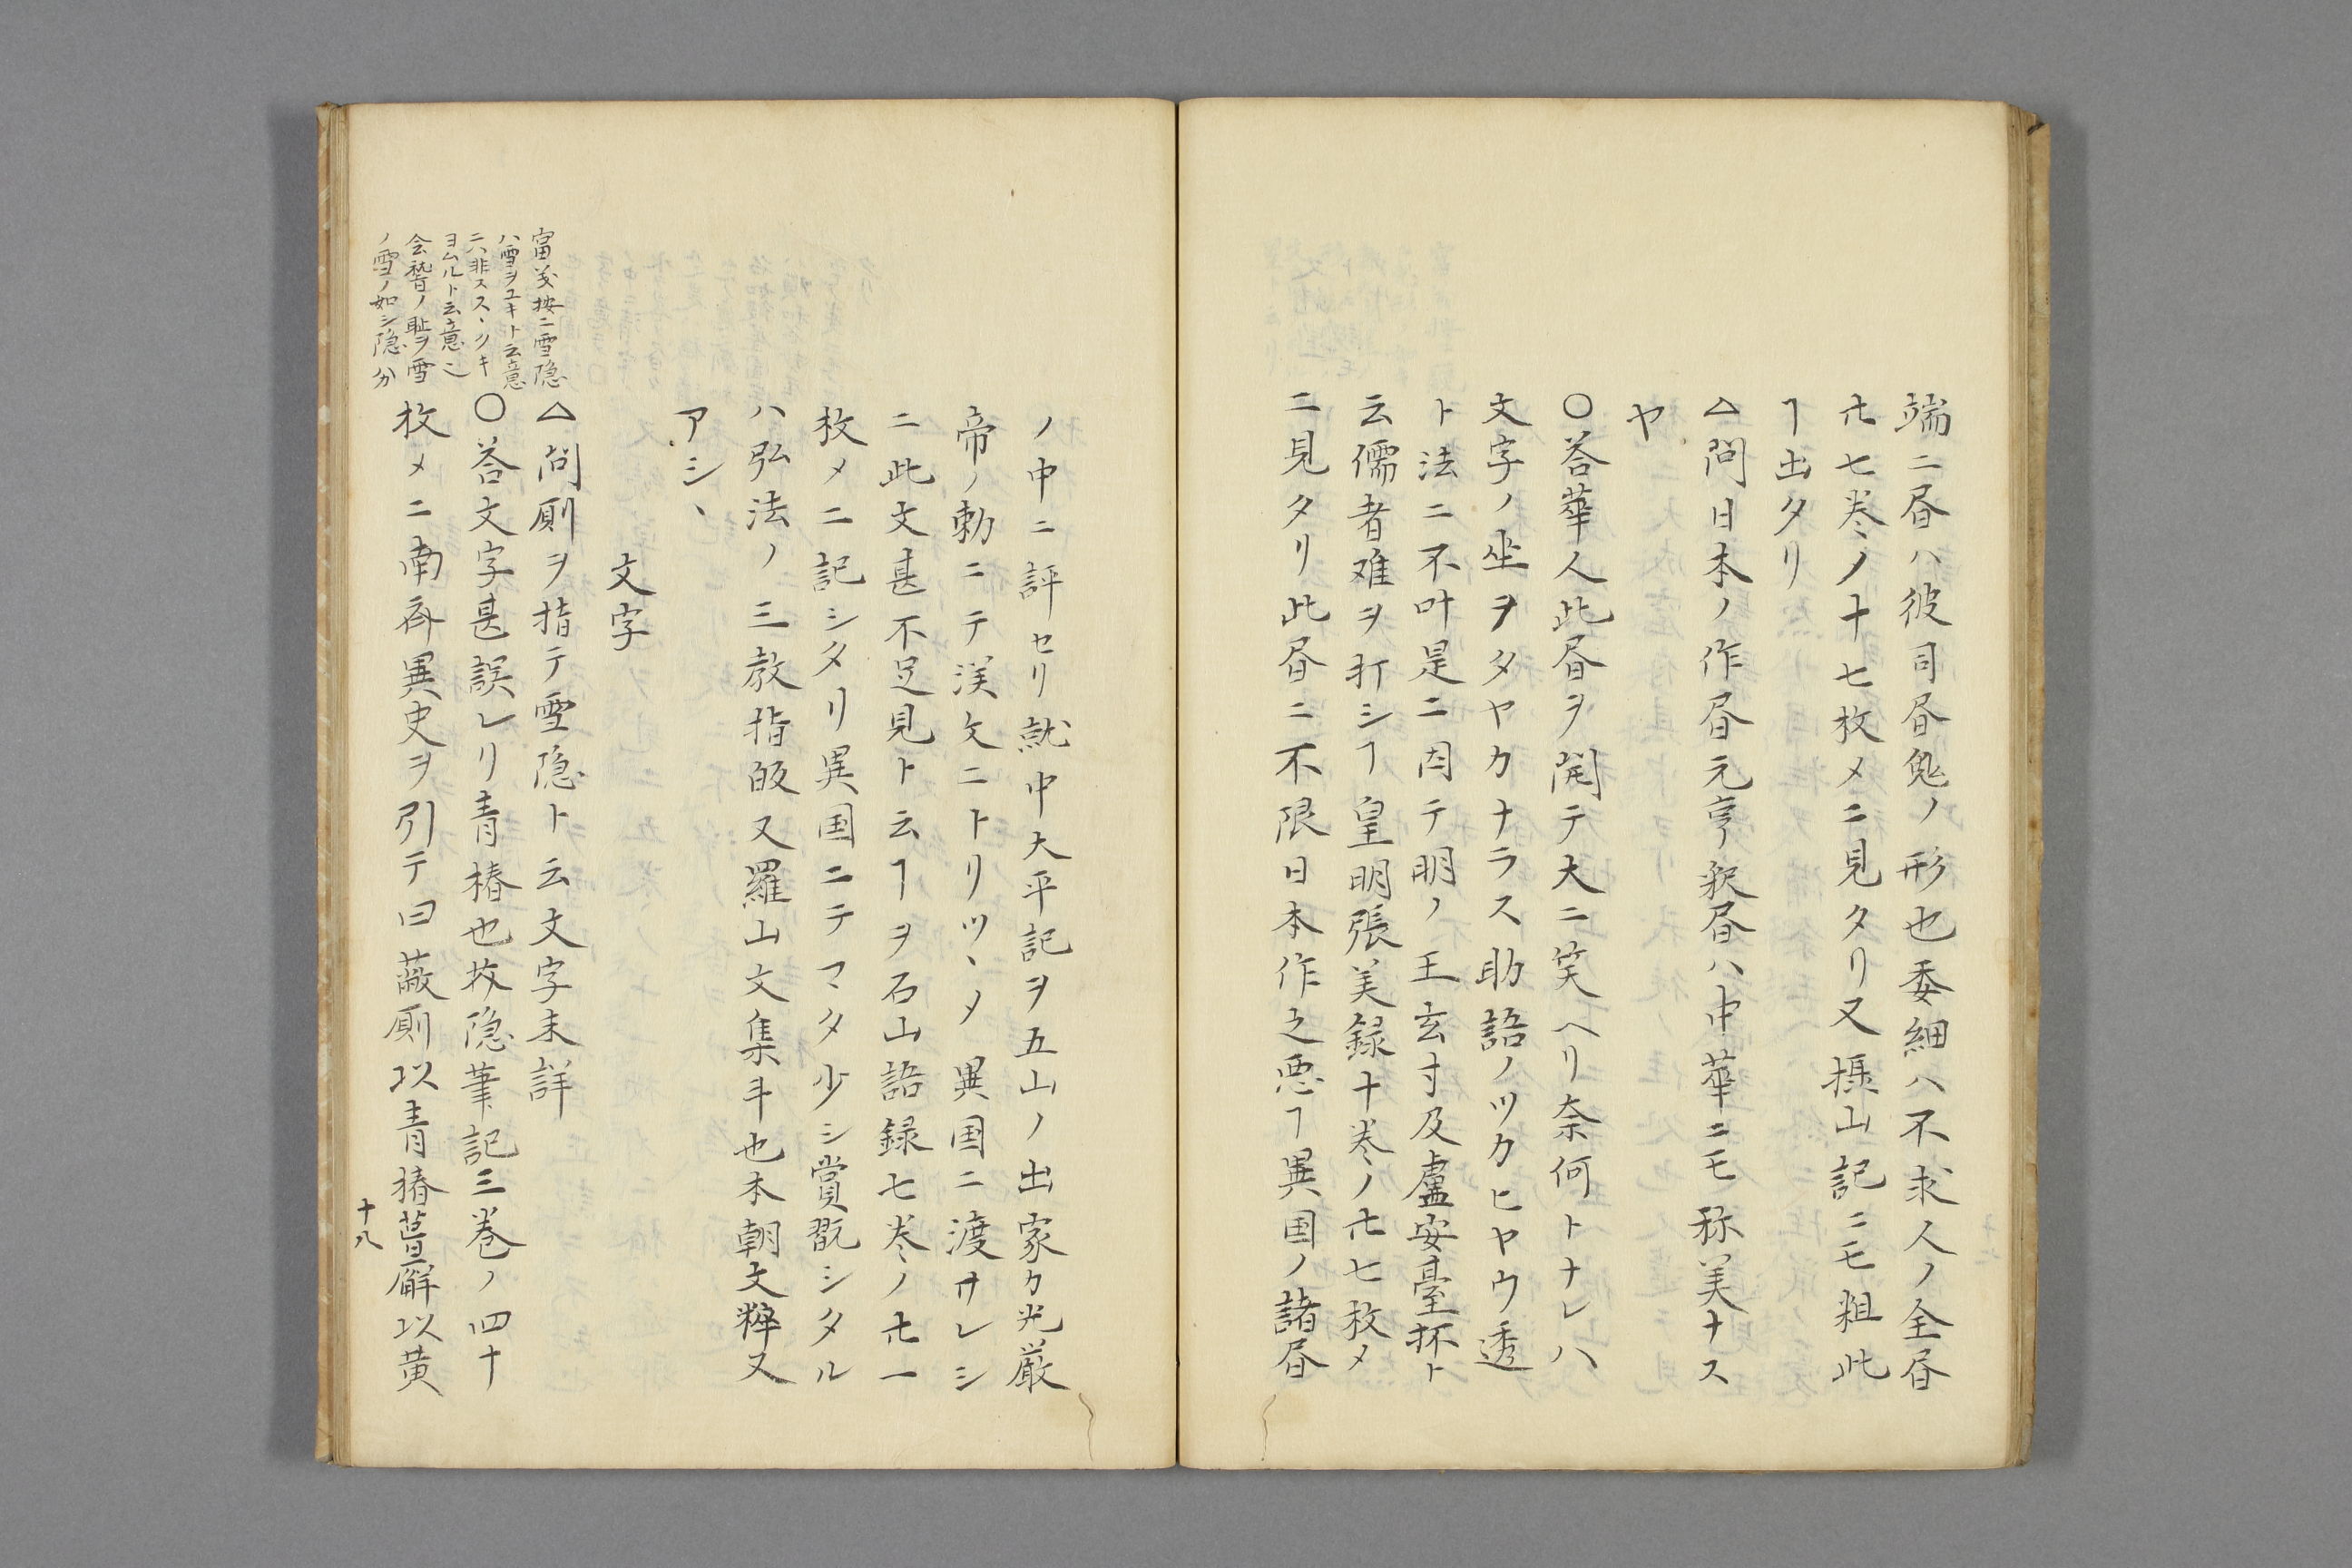 端ニ昼ハ彼司昼鬼ノ形也委細ハ不求人ノ全昼
卄七巻ノ十七枚メニ見タリ又㩜山記ニモ粗此
ヿ出タリ
△問日本ノ作昼元亨釈昼ハ中華ニモ称美ナス
ヤ
○答華人此昼ヲ開テ大ニ笑ヘリ奈何トナレハ
文字ノ坐ヲタヤカナラス助語ノツカヒヤウ透
ト法ニ不叶是ニ因テ明ノ王玄寸及盧安臺抔ト
云儒者难ヲ打シヿ皇明張美録十巻ノ卄七枚メ
ニ見タリ此昼ニ不限日本作之悪ヿ異国ノ諸昼
ノ中ニ評セリ就中大平記ヲ五山ノ出家カ光厳
帝ノ勅ニテ漢文ニトリツヽメ異国ニ渡サレシ
ニ此文甚不足見ト云ヿヲ石山語録七巻ノ卄一
枚メニ記シタリ異国ニテマタ少シ賞翫シタル
ハ弘法ノ三教指皈又羅山文集斗也本朝文粹又
アシヽ
文字
△問厠ヲ指テ雪隠ト云文字未詳
○答文字甚誤レリ青椿也故隠筆記三巻ノ四十
枚メニ南斉異史ヲ引テ曰蔽厠以青椿葺廨以黄
富義按ニ雪隠
ハ雪ヲユキト云意
ニハ非ススヽクキ
ヨムルト云意ニ
会稽ノ耻ヲ雪
ノ雪ノ如シ隠分
十八